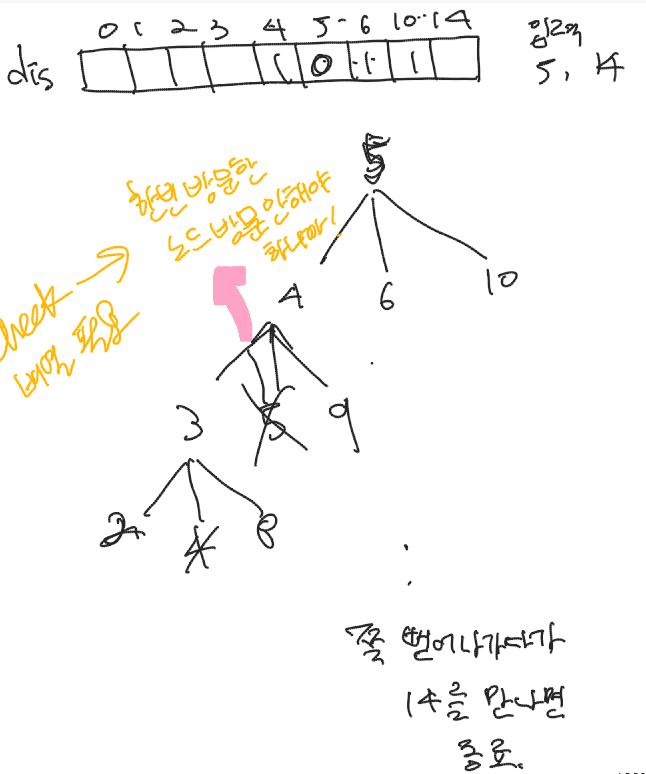 0 1 2 3 4 5 - 6 10 .. 14
dis 1 0 1 1
입력
5, 14
5
한번 방문한
노드 방문 안해야
하니까!
check
배열 활용
4 6 10
3 5 9
2 4 8
쭉 뻗어나가다가
14를 만나면
종료.